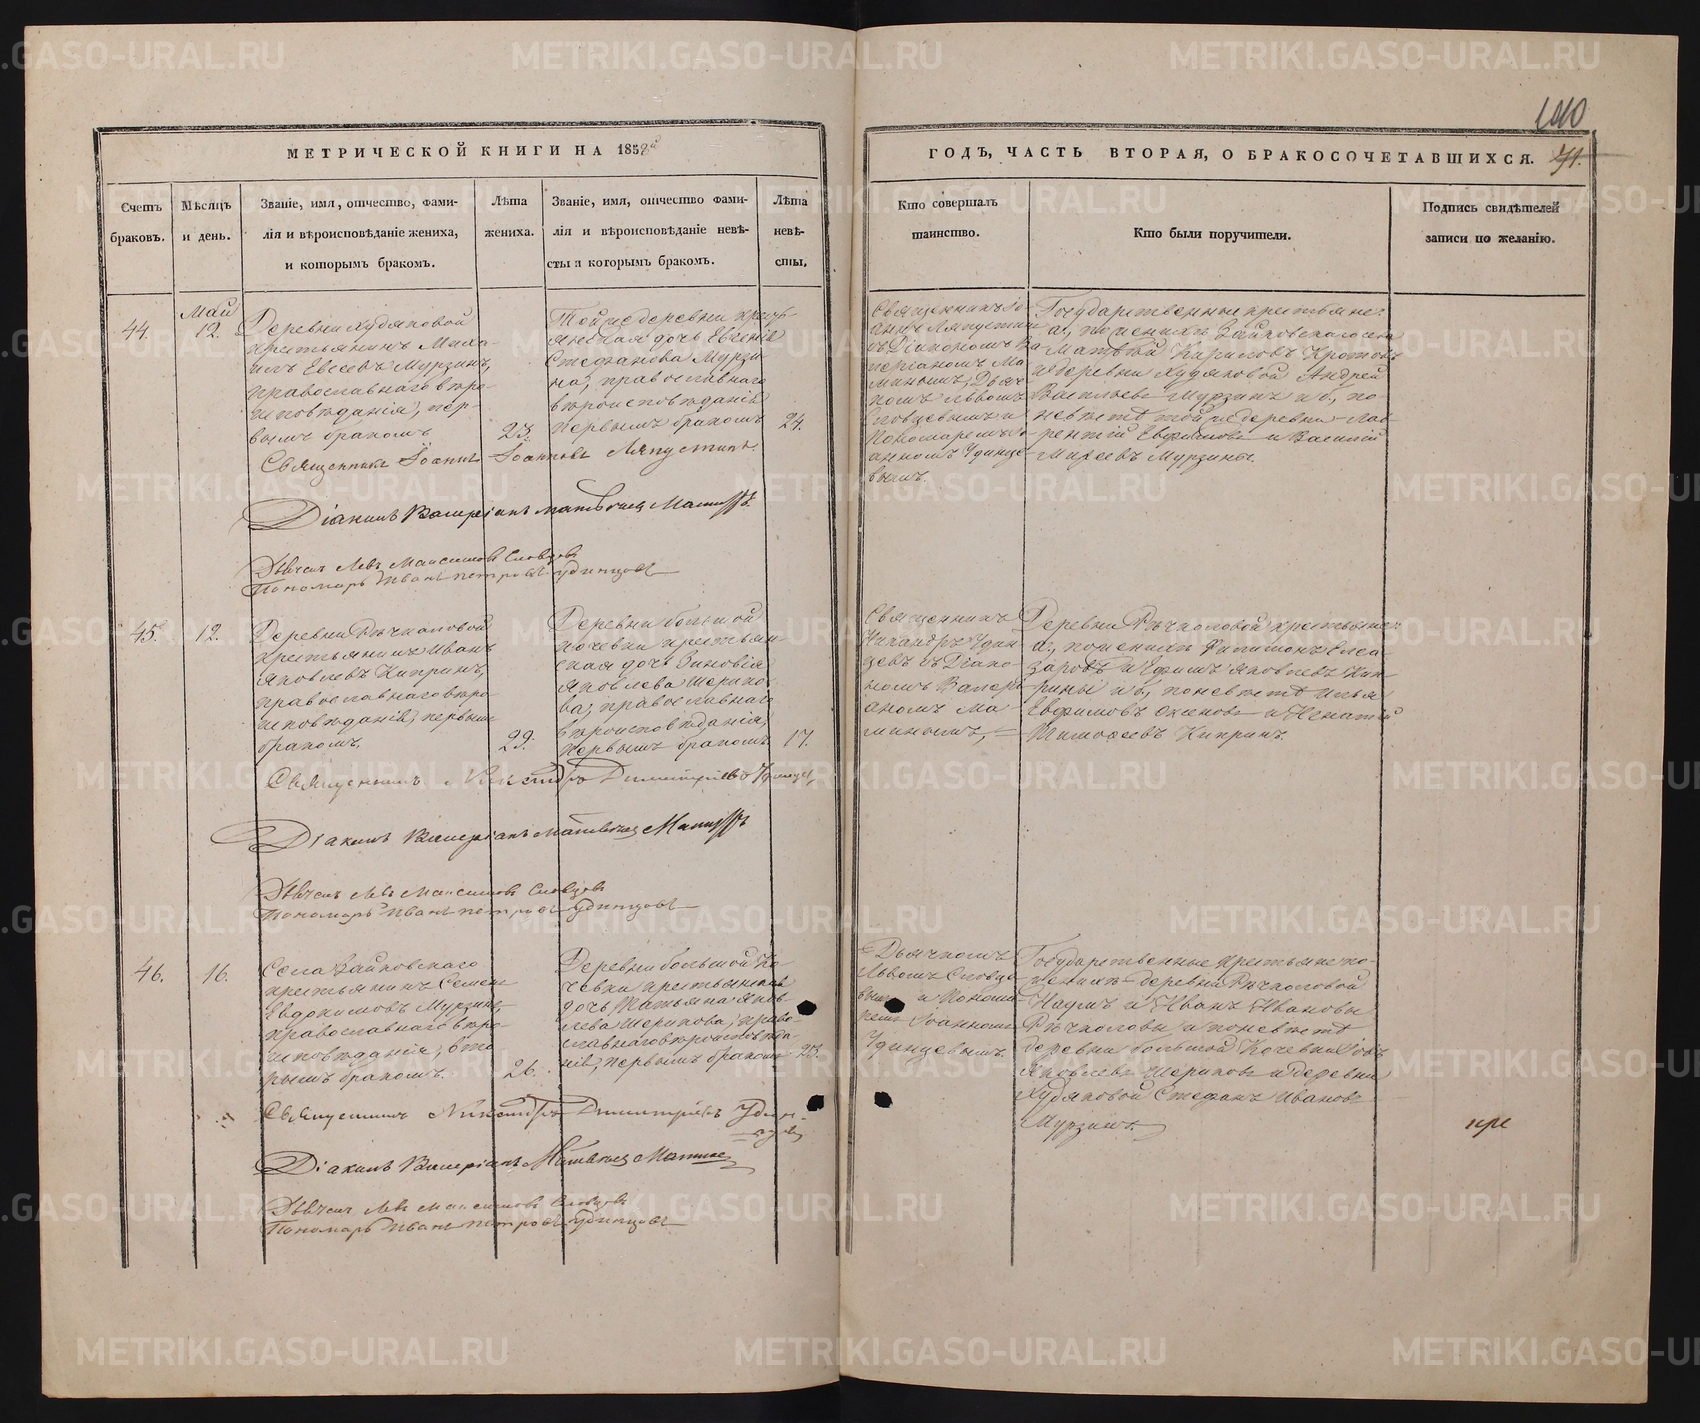 МЕТРИЧЕСКОЙ КНИГИ НА 1858й
ГОДЪ, ЧАСТЬ ВТОРАЯ, О БРАКОСОЧЕТАВШИХСЯ. 71.
140
Счетъ браковъ.
Мѣсяцъ и день.
Званіе, имя, отчество, фами-
лія и вѣроисповѣданіе жениха,
и которымъ бракомъ.
Лѣта
жениха.
Званіе, имя, отчество фами-
лія и вѣроисповѣданіе невѣ-
сты и которымъ бракомъ.
Лѣта
невѣ-
сты,
Кто совершалъ
таинство.
Кто были поручители.
Подпись свидѣтелей
записи по желанію.
44.
Май
12.
Деревни Худяковой
крестьянинъ Миха-
илъ Евсеевъ Мурзинъ,
православнаго вѣро-
исповѣданія, пер-
вымъ бракомъ
23.
Той же деревни кресть-
янская дочь Евгенія
Стефанова Мурзи-
на, православнаго
вѣроисповѣданія
первымъ бракомъ
24.
Священникъ Іо-
аннъ Ляпустинъ
съ Діакономъ Ва-
леріаномъ Ма-
минымъ, Дьяч-
комъ Львомъ
Словцевымъ и
Пономаремъ Іо-
анномъ Удинце-
вымъ.
Государственные крестьяне:
а., по женихѣ Зайковскаго села
Матвѣй Кириловъ Кротовъ
и деревни Худяковой Андрей
Васильевъ Мурзинъ и б., по
невѣстѣ той же деревни Лав-
рентій Евфимовъ и Василій
Мурзины.
Священникъ Іоаннъ Іоанновъ Ляпустинъ.
Діаконъ Валеріанъ Матвѣевъ Маминъ
Дьячекъ Левъ Максимовъ Словцовъ
Пономарь Иванъ Петровъ Удинцовъ
45.
12.
Деревни Рѣчкаловой
крестьянинъ Иванъ
Яковлевъ Кипринъ,
православнаго вѣро-
исповѣданія, первымъ
бракомъ.
29.
Деревни большой
Кочевки крестьян-
ская дочь Зиновія
Яковлева Шерпко-
ва, православнаго
вѣроисповѣданія,
первымъ бракомъ
17.
Священникъ
Никандръ Удин-
цевъ съ Діако-
номъ Валері-
аномъ Ма-
минымъ,
Деревни Рѣчкаловой крестьяне:
а., по женихѣ Филимонъ Елеа-
заровъ и Ефимъ Яковлевъ Кип-
рины и б., по невѣстѣ Илья
Евфимовъ и Игнатій
Тимофеевъ Кипринъ.
Священникъ Никандръ Димитріевъ Удинцевъ
Діаконъ Валеріанъ Матвѣевъ Маминъ
Дьячекъ Левъ Максимовъ Словцовъ
Пономарь Иванъ Петровъ Удинцовъ
46.
16.
Села Зайковскаго
крестьянинъ Семенъ
Евдокимовъ Мурзинъ,
православнаго вѣро-
исповѣданія, вто-
рымъ бракомъ.
26.
Деревни большой Ко-
чевки крестьянская
дочь Татьяна Яков-
лева Шерпкова, право-
славнаго вѣроисповѣда-
нія, первымъ бракомъ
23.
Дьячкомъ
Львомъ Словце-
вымъ и Понома-
ремъ Іоанномъ
Удинцевымъ.
Государственные крестьяне по
женихѣ деревни Рѣчкаловой
и Иванъ Ивановы
Рѣчкаловы и по невѣстѣ
деревни большой Кочевки Іовъ
Яковлевъ Шерпковъ и деревни
Худяковой Стефанъ Ивановъ
Мурзинъ.
Священникъ Никандръ Димитріевъ Удин-
цевъ
Діаконъ Валеріанъ Матвѣевъ Маминъ
Дьячекъ Левъ Максимовъ Словцовъ
Пономарь Иванъ Петровъ Удинцовъ
METRIKI.GASO-URAL.RU